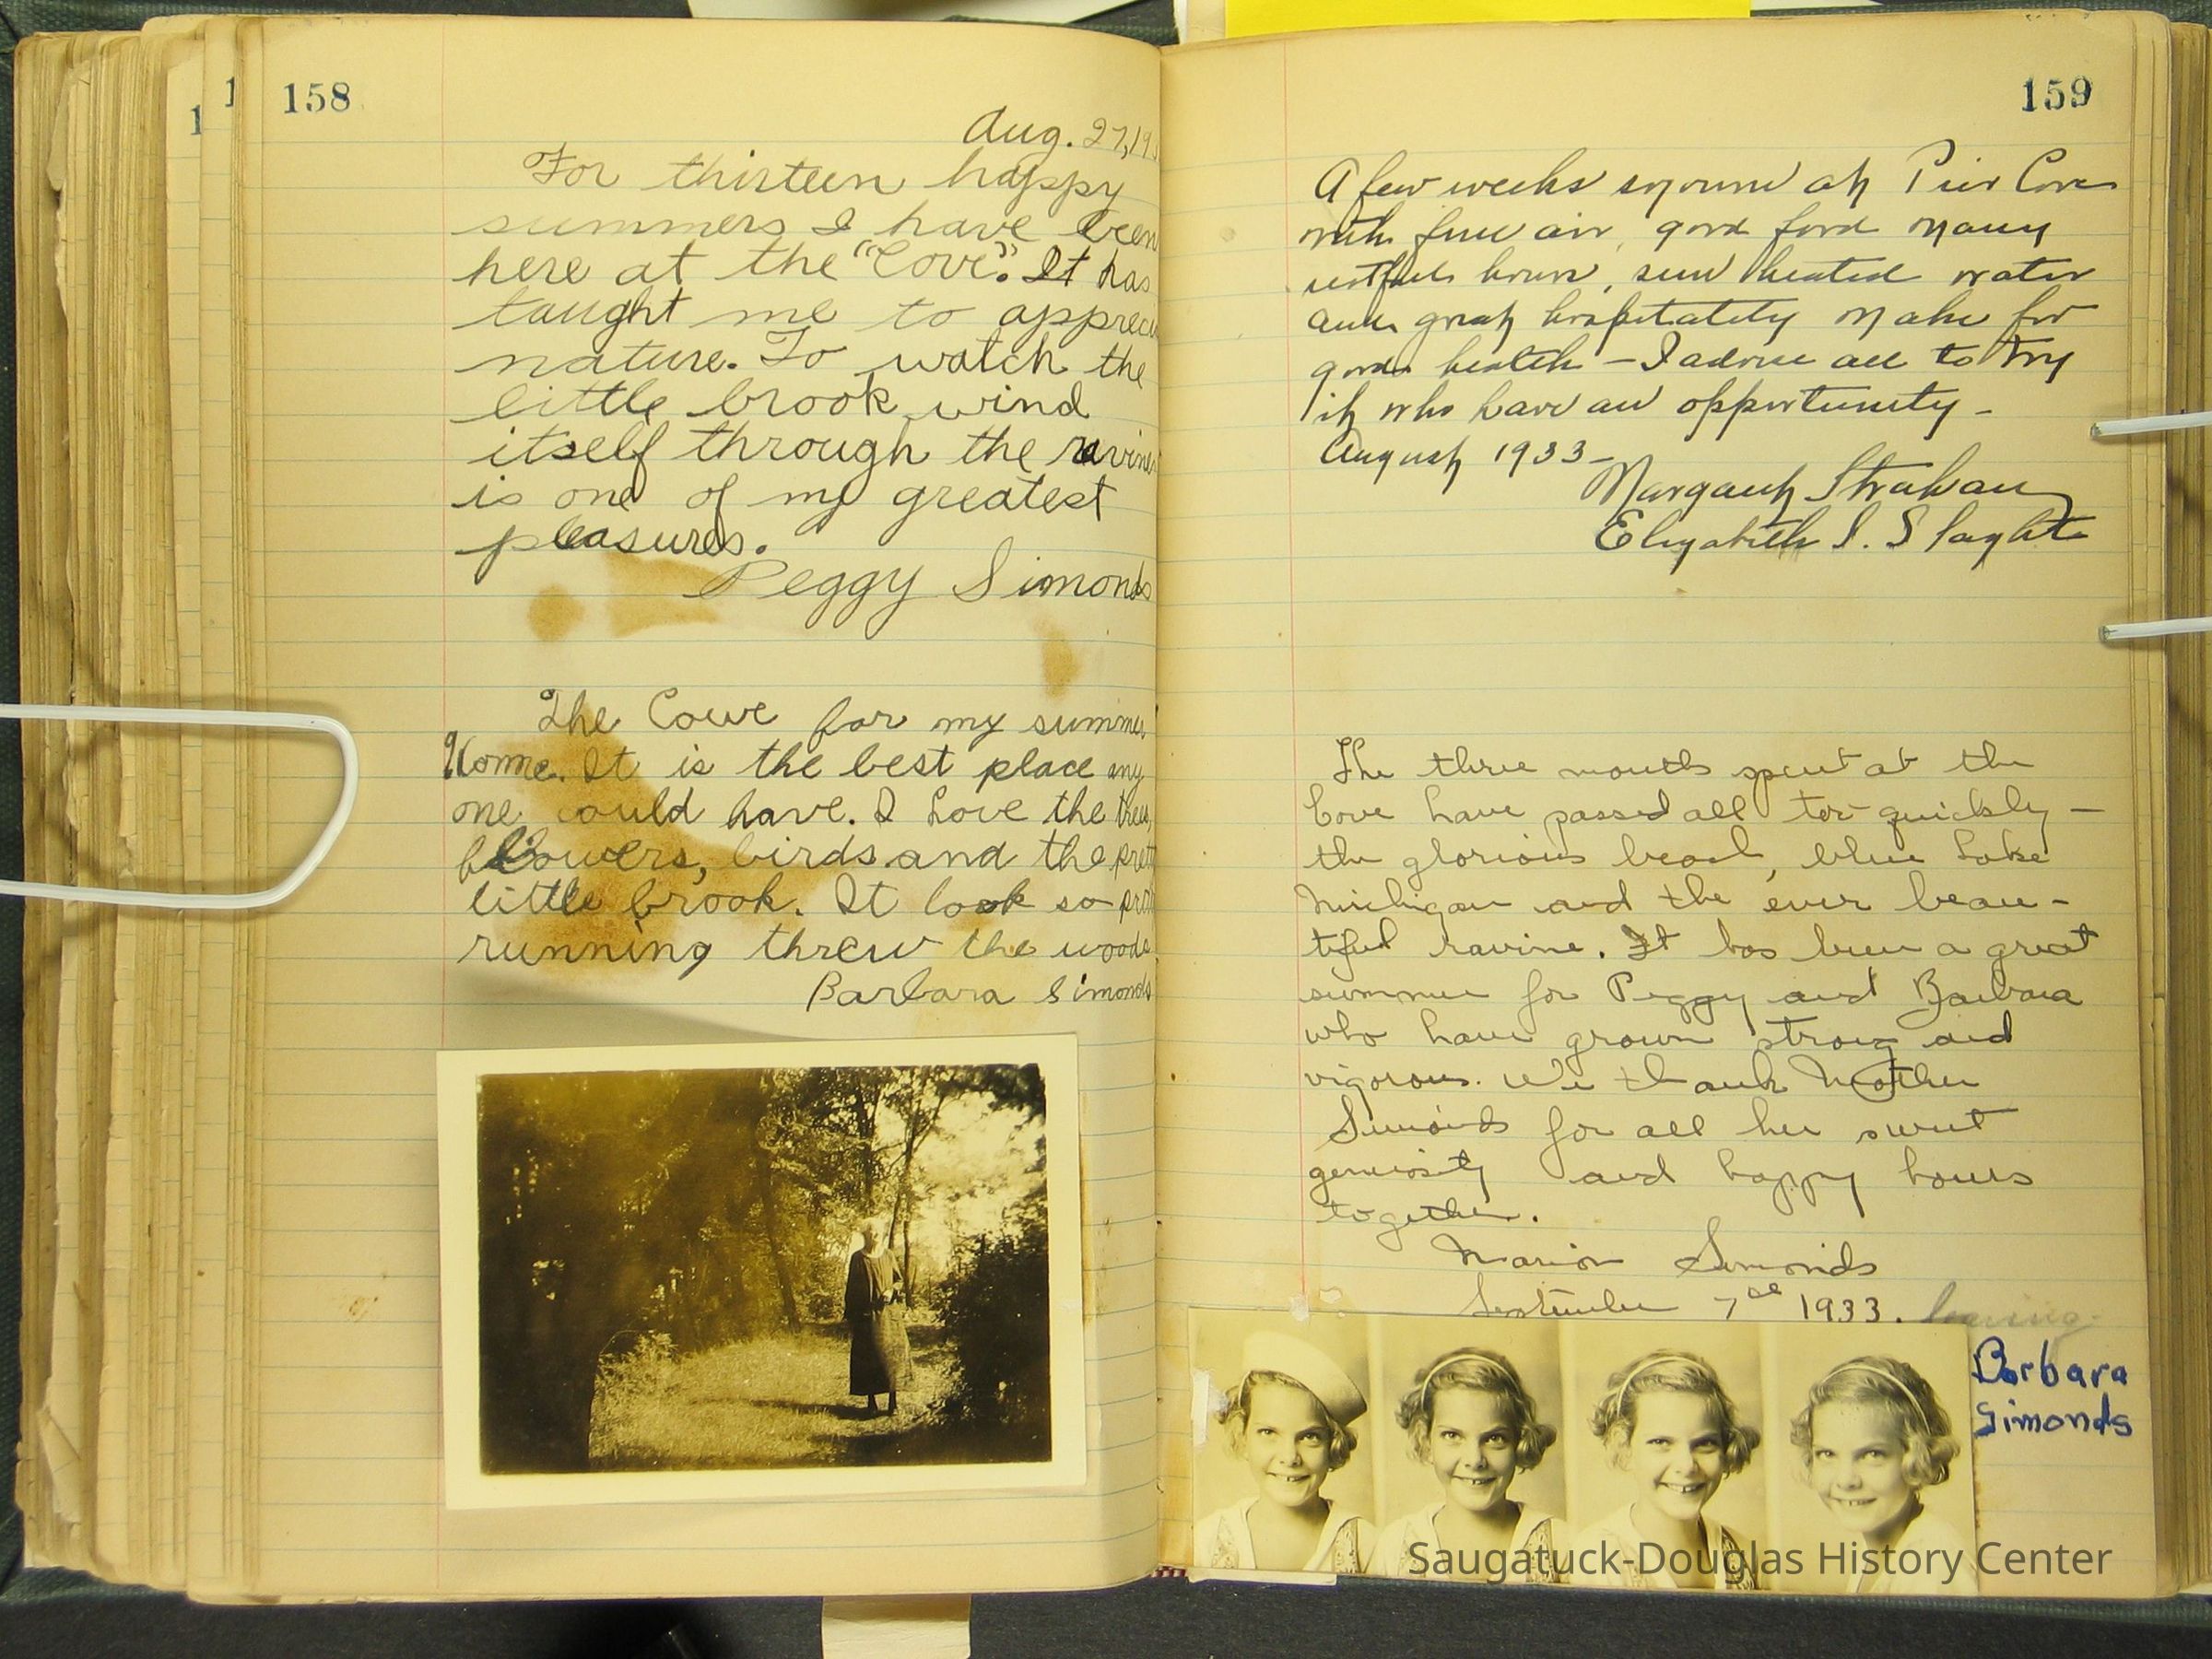 158
Aug. 27, 19
For thirteen happy
summers I have been
here at the "Cove". It has
taught me to apprecia
nature. To watch the
little brook wind
itself through the ravine
is one of my greatest
pleasures.
Peggy Simonds
The Cove for my summer
Home. It is the best place any
one could have. I Love the trees,
flowers, birds and the pretty
little brook. It look so pretty
running threw the woods.
Barbara Simonds
159
A few weeks sojourn at Pier Cove
with fine air, good food many
restful hours, sun heated water
and great hospitality make for
good health – I advise all to try
it who have an opportunity –
August 1933 –
Margaret Strahan
Elizabeth S. Slaght
The three months spent at the
Cove have passed all too quickly –
the glorious beach, blue Lake
Michigan and the ever beau-
tiful ravine. It has been a great
summer for Peggy and Barbara
who have grown strong and
vigorous. We thank Mother
Simonds for all her sweet
generosity and happy hours
together.
Marion Simonds
September 7 1933. leaving
Barbara
Simonds
Saugatuck-Douglas History Center